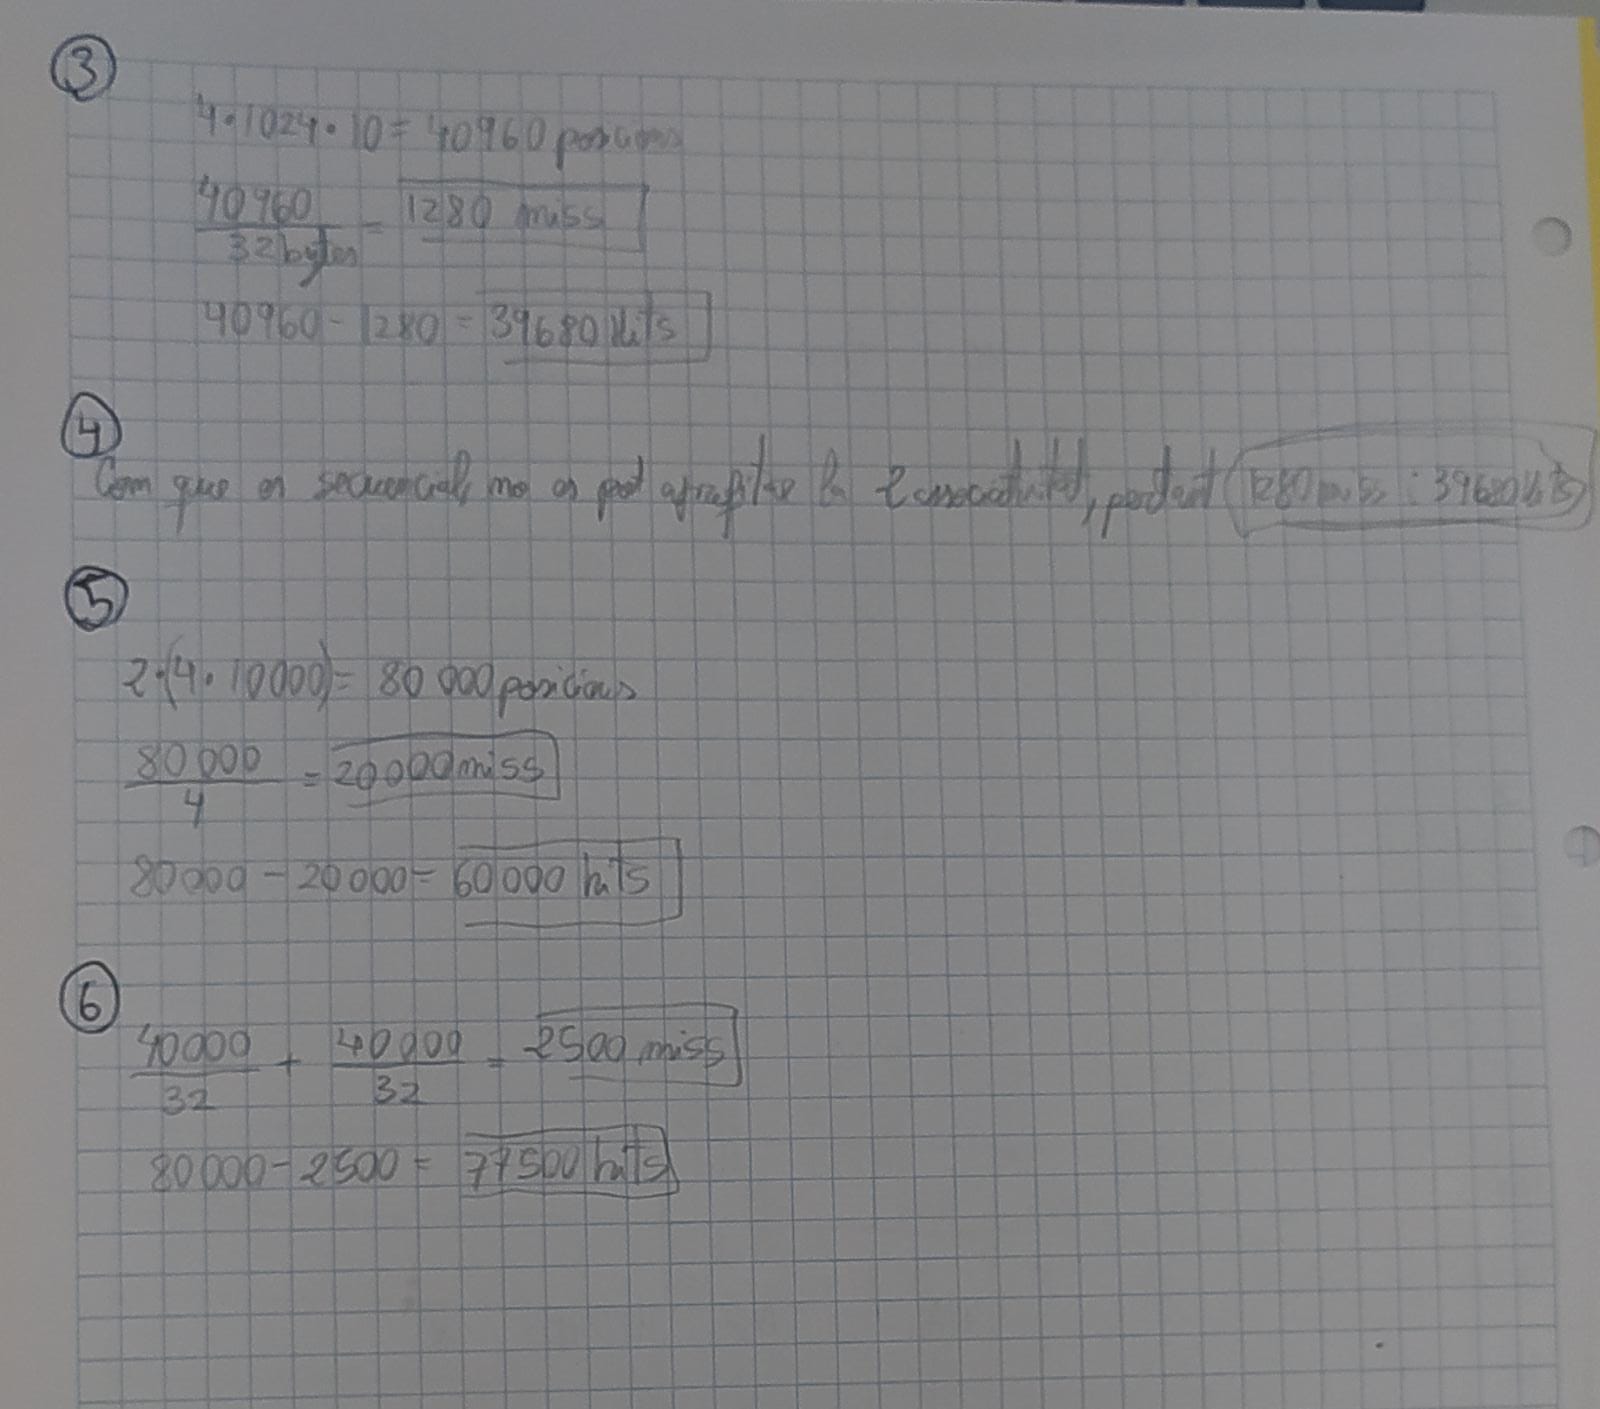 3
4·1024·10 = 40960 posicions
40960 / 32 bytes = 1280 miss
40960 - 1280 = 39680 hits
4
Com que es sequencial, no es pot aprofitar la 2 associativitat, per tant 1280 miss : 39680 hits
5
2·(4·10000) = 80 000 posicions
80 000 / 4 = 20 000 miss
80000 - 20000 = 60 000 hits
6
40000 / 32 + 40000 / 32 = 2500 miss
80000 - 2500 = 77500 hits